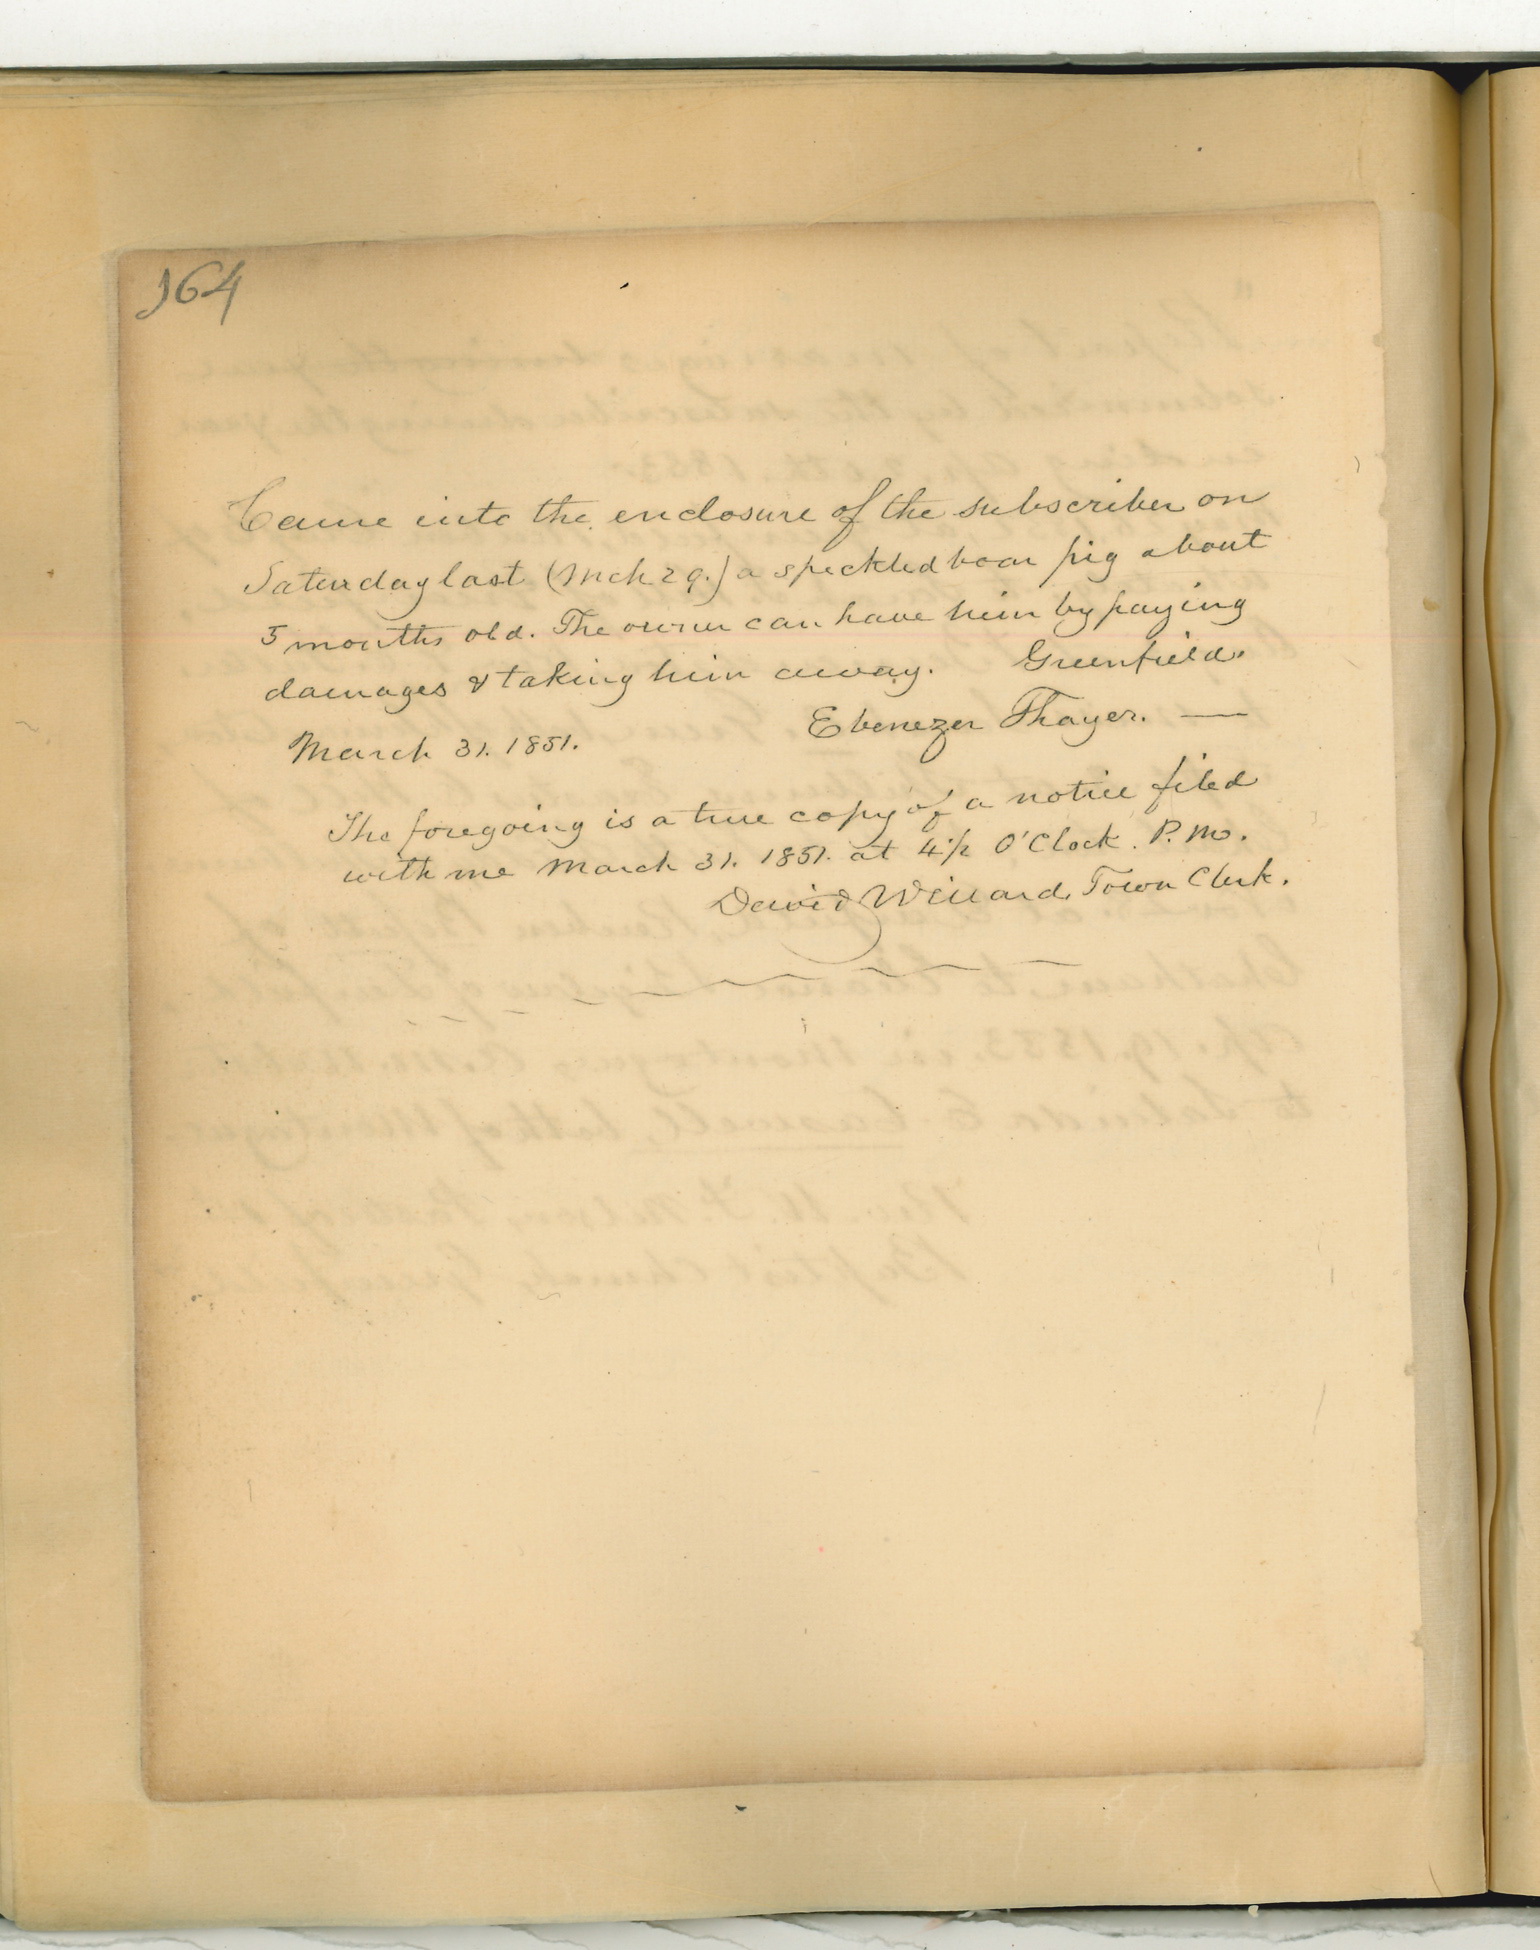 164
Came into the enclosure of the subscriber on
Saturday last (Mch 29.) a speckled boar pig about
5 months old. The owner can have him by paying
damages & taking him away. Greenfield.
March 31. 1851. Ebenezer Thayer. —
The foregoing is a true copy of a notice filed
with me March 31. 1851. at 4 1/2 O'Clock. P. M.
David Willard, Town Clerk.